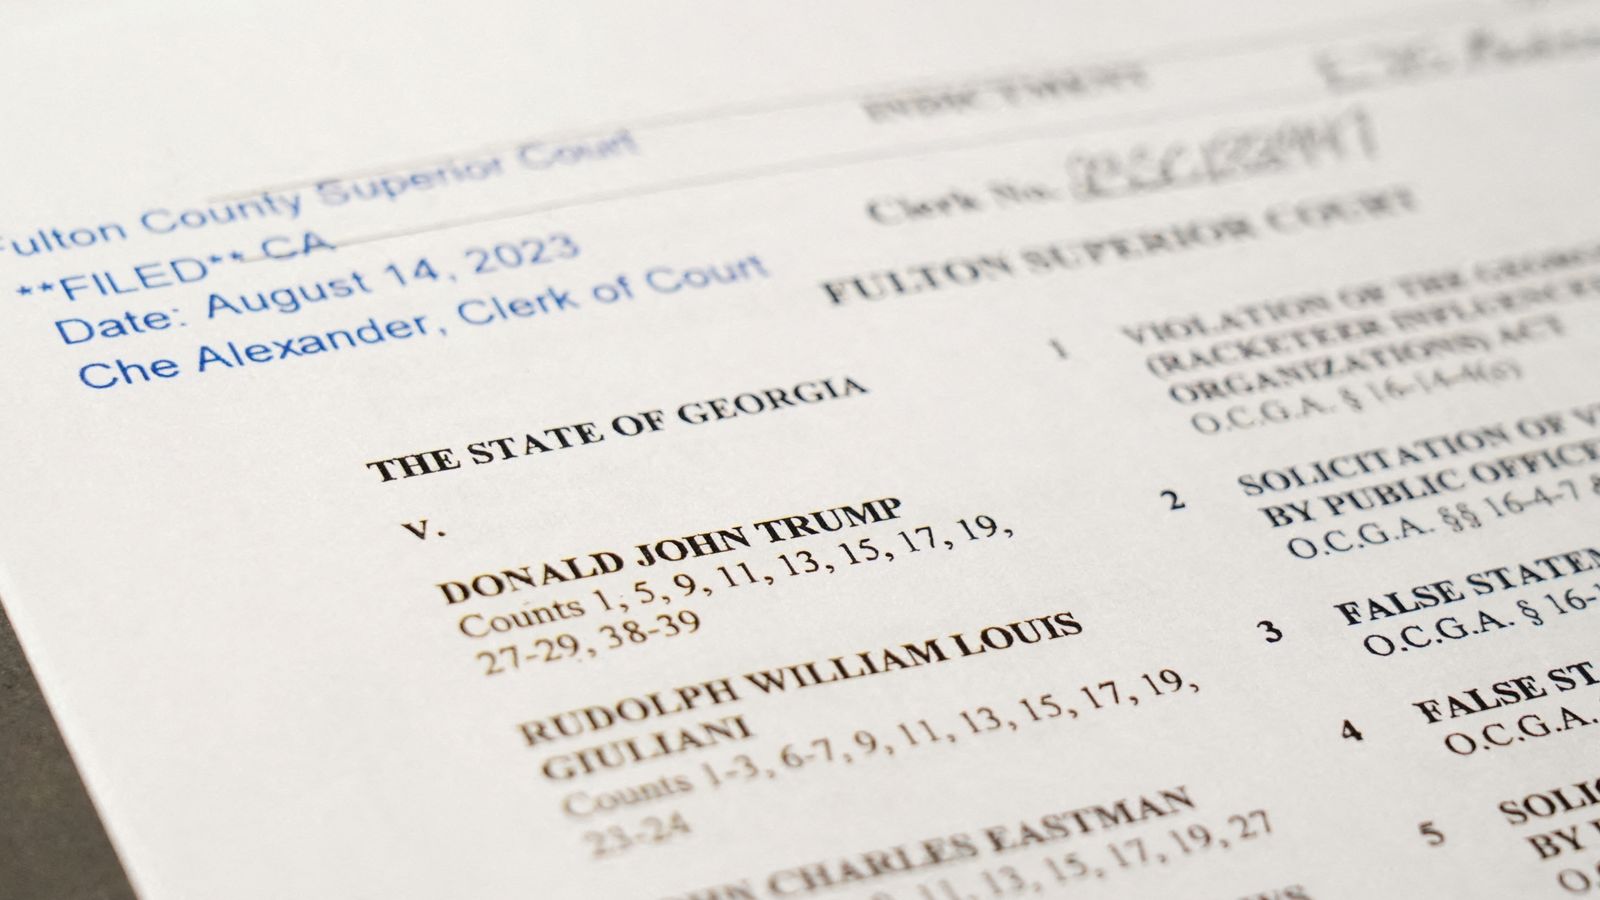 INDICTMENT
Clerk No.
Fulton County Superior Court
**FILED** CA
Date: August 14, 2023
Che Alexander, Clerk of Court
FULTON SUPERIOR COURT
THE STATE OF GEORGIA
v.
DONALD JOHN TRUMP
Counts 1, 5, 9, 11, 13, 15, 17, 19,
27-29, 38-39
RUDOLPH WILLIAM LOUIS
GIULIANI
Counts 1-3, 6-7, 9, 11, 13, 15, 17, 19,
23-24
CHARLES EASTMAN
11, 13, 15, 17, 19, 27
1 VIOLATION OF THE
(RACKETEER
ORGANIZATIONS) ACT
O.C.G.A. § 16-14-4(c)
2 SOLICITATION OF
BY PUBLIC
O.C.G.A. §§ 16-4-7
3 FALSE
O.C.G.A. §
4 FALSE
O.C.G.A.
5
BY